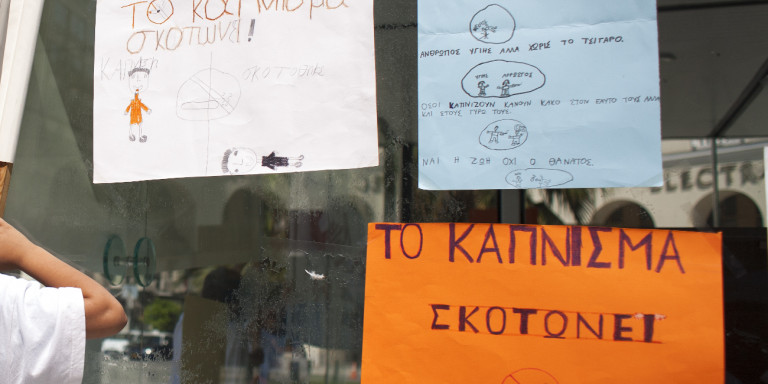 ΤΟ ΚΑΠΝΙΣΜΑ
ΣΚΟΤΩΝΕΙ!
ΑΝΘΡΩΠΟΣ ΥΓΙΗΣ ΑΛΛΑ ΧΩΡΙΣ ΤΟ ΤΣΙΓΑΡΟ.
ΥΓΙΗΣ ΑΡΡΩΣΤΟΣ
ΟSΟΙ ΚΑΠΝΙΖΟΥΝ ΚΑΝΟΥΝ ΚΑΚΟ ΣΤΟΝ ΕΑΥΤΟ ΤΟΥΣ ΑΛΛΑ
ΚΑΙ ΣΤΟΥΣ ΓΥΡΩ ΤΟΥΣ.
ΝΑΙ Η ΖΩΗ ΟΧΙ Ο ΘΑΝΑΤΟΣ.
ΤΟ ΚΑΠΝΙΣΜΑ
ΣΚΟΤΩΝΕΙ